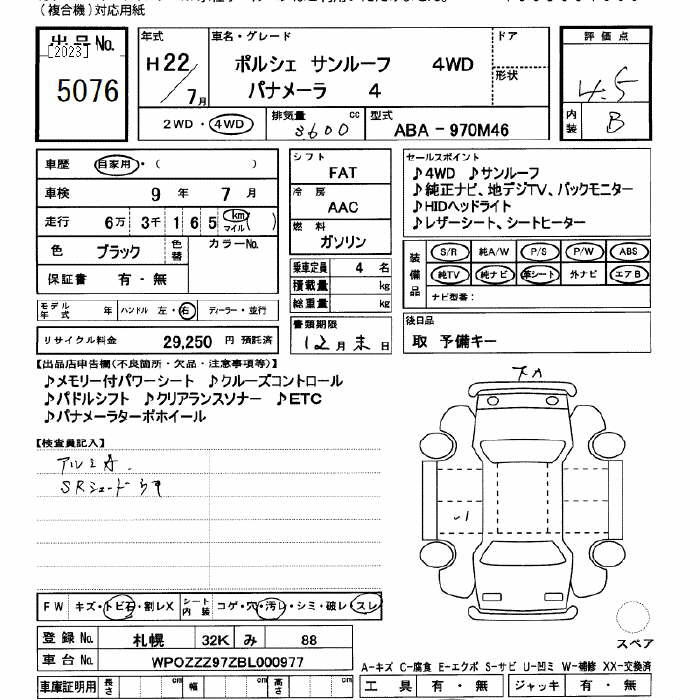 (複合機)対応用紙
出品No.
[2023]
5076
年式
H22/7月
車名・グレード
ポルシェ サンルーフ 4WD
パナメーラ 4
ドア
形状
評価点
4.5
内装
B
2WD・4WD
排気量 3600 cc
型式 ABA-970M46
車歴 自家用・( )
車検 9年 7月
走行 6万 3千 1 6 5 km マイル( )
色 ブラック 色替 カラーNo.
保証書 有・無
シフト
FAT
冷房
AAC
燃料
ガソリン
乗車定員 4 名
積載量 kg
総重量 kg
セールスポイント
♪4WD ♪サンルーフ
♪純正ナビ、地デジTV、バックモニター
♪HIDヘッドライト
♪レザーシート、シートヒーター
装備品
S/R 純A/W P/S P/W ABS
純TV 純ナビ 革シート 外ナビ エアB
ナビ型番:
モデル年式 年 ハンドル 左・右 ディーラー・並行
リサイクル料金 29,250 円 預託済
書類期限
12月末日
後日品
取 予備キー
【出品店申告欄(不良箇所・欠品・注意事項等)】
♪メモリー付パワーシート ♪クルーズコントロール
♪パドルシフト ♪クリアランスソナー ♪ETC
♪パナメーラターボホイール
【検査員記入】
アルミA.
SRシェード
FW キズ・トビ石・割レX シート内装 コゲ・穴・汚レ・シミ・破レ・スレ
登録No. 札幌 32K み 88
車台No. WPOZZZ97ZBL000977
車庫証明用 長さ cm 幅 cm 高さ cm
スペア
A-キズ C-腐食 E-エクボ S-サビ U-凹ミ W-補修 XX-交換済
工具 有・無 ジャッキ 有・無